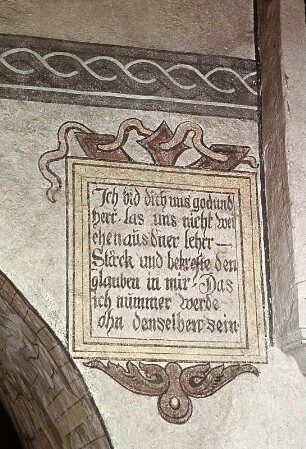 Ich bid dich uns god und
herr las uns nicht wei
chen aus diner lehr —
Stärck und bekrefte den
glauben in mir / Das
ich nümmer werde
ohn denselben sein